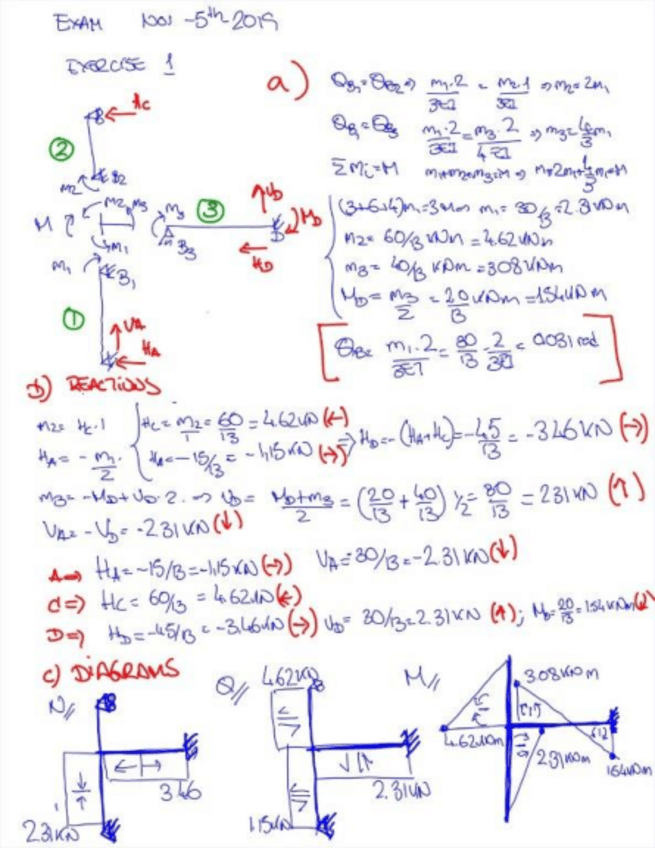 EXAM Nov -5th-2019
EXERCISE 1
a)
θB1=θB2⇒ m1·2/3EI = m2·1/3EI ⇒m2=2m1
θB1=θB3 m1·2/3EI = m3·2/4EI ⇒ m3=4/3m1
Σmi=M m1+m2+m3=M ⇒ m1+2m1+4/3m1=M
(3+6+4)m1=3M m1= 30/13=2.31KNm
m2= 60/13 KNm =4.62KNm
m3= 40/13 KNm =3.08KNm
MD= m3/2 = 20/13 KNm =1.54KNm
θB= m1·2/3EI = 30/13 · 2/3 = 0.031 rad
HC
B
2
B2
m2
m2 m3
M
m1
m3
3
B3
VD
MD
D
HD
m1
B1
1
VA
HA
b) REACTIONS
m2= HC·1 HC= m2/1 = 60/13 = 4.62KN (←)
HA= - m1/2 HA=-15/13= -1,15KN (→) ⇒HD=-(HA+HC)=-45/13=-3.46KN (→)
m3=-MD+VD·2 ⇒ VD= MD+m3/2 = (20/13+40/13) 1/2=30/13=2.31KN (↑)
VA=-VD=-2.31KN(↓)
A⇒ HA=-15/13=-1,15KN(→) VA=30/13=-2.31KN(↓)
C⇒) HC= 60/13 = 4.62KN(←)
D⇒) HD=-45/13=-3,46KN(→) VD= 30/13=2.31KN (↑); MD=20/13=1.54KNm
c) DIAGRAMS
N//
B
3.46
2.31KN
Q//
4.62KN
B
2.31KN
1.15KN
M//
3.08KNm
4.62KNm
2.31KNm
1.54KNm